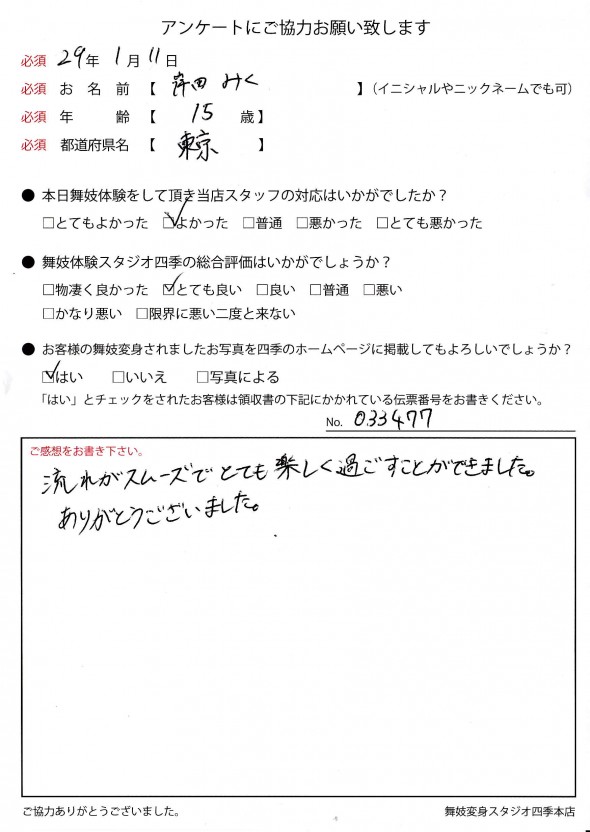 アンケートにご協力お願い致します
必須 29年 1月 11日
必須 お名前 【 岸田 みく 】(イニシャルやニックネームでも可)
必須 年齢 【 15 歳】
必須 都道府県名 【 東京 】
● 本日舞妓体験をして頂き当店スタッフの対応はいかがでしたか？
□とてもよかった ☑よかった □普通 □悪かった □とても悪かった
● 舞妓体験スタジオ四季の総合評価はいかがでしょうか？
□物凄く良かった ☑とても良い □良い □普通 □悪い
□かなり悪い □限界に悪い二度と来ない
● お客様の舞妓変身されましたお写真を四季のホームページに掲載してもよろしいでしょうか？
☑はい □いいえ □写真による
「はい」とチェックをされたお客様は領収書の下記にかかれている伝票番号をお書きください。
No. 033477
ご感想をお書き下さい。
流れがスムーズでとても楽しく過ごすことができました。
ありがとうございました。
ご協力ありがとうございました。 舞妓変身スタジオ四季本店